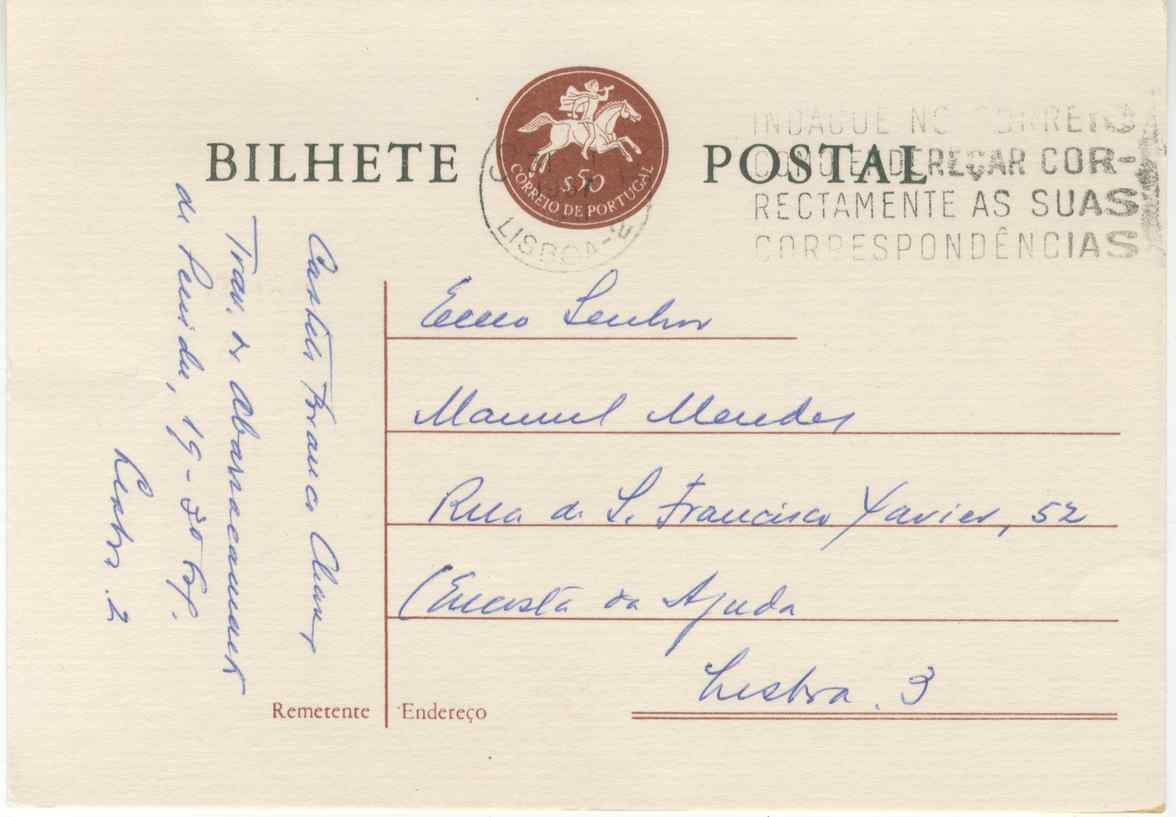 BILHETE POSTAL
$50
CORREIO DE PORTUGAL
LISBOA-
INDAGUE NO CORREIO
COMO ENDEREÇAR COR-
RECTAMENTE AS SUAS
CORRESPONDÊNCIAS
Exmo Senhor
Manuel Mendes
Rua de S. Francisco Xavier, 52
(Encosta da Ajuda
Lisboa. 3
Castelo Branco Chaves
Trav. do Abarracamento
de Peniche, 19-3º
Lisboa. 2
Remetente
Endereço